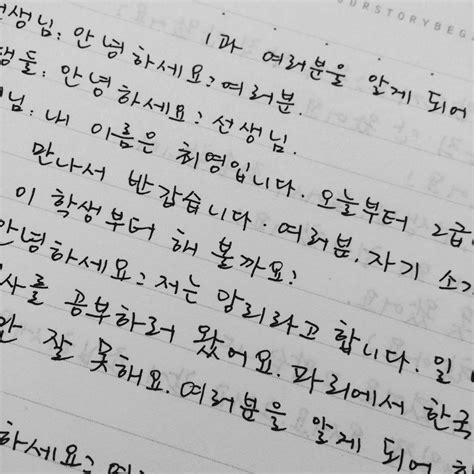 URSTORYBEG
1과 여러분을 알게 되어
선생님: 안녕하세요? 여러분.
생들: 안녕하세요? 선생님.
님: 내 이름은 최영입니다. 오늘부터 2급
만나서 반갑습니다. 여러분, 자기 소개
이 학생부터 해 볼까요?
안녕하세요? 저는 앙리라고 합니다. 일
사를 공부하러 왔어요. 파리에서 한국
잘 못해요. 여러분을 알게 되어
하세요?